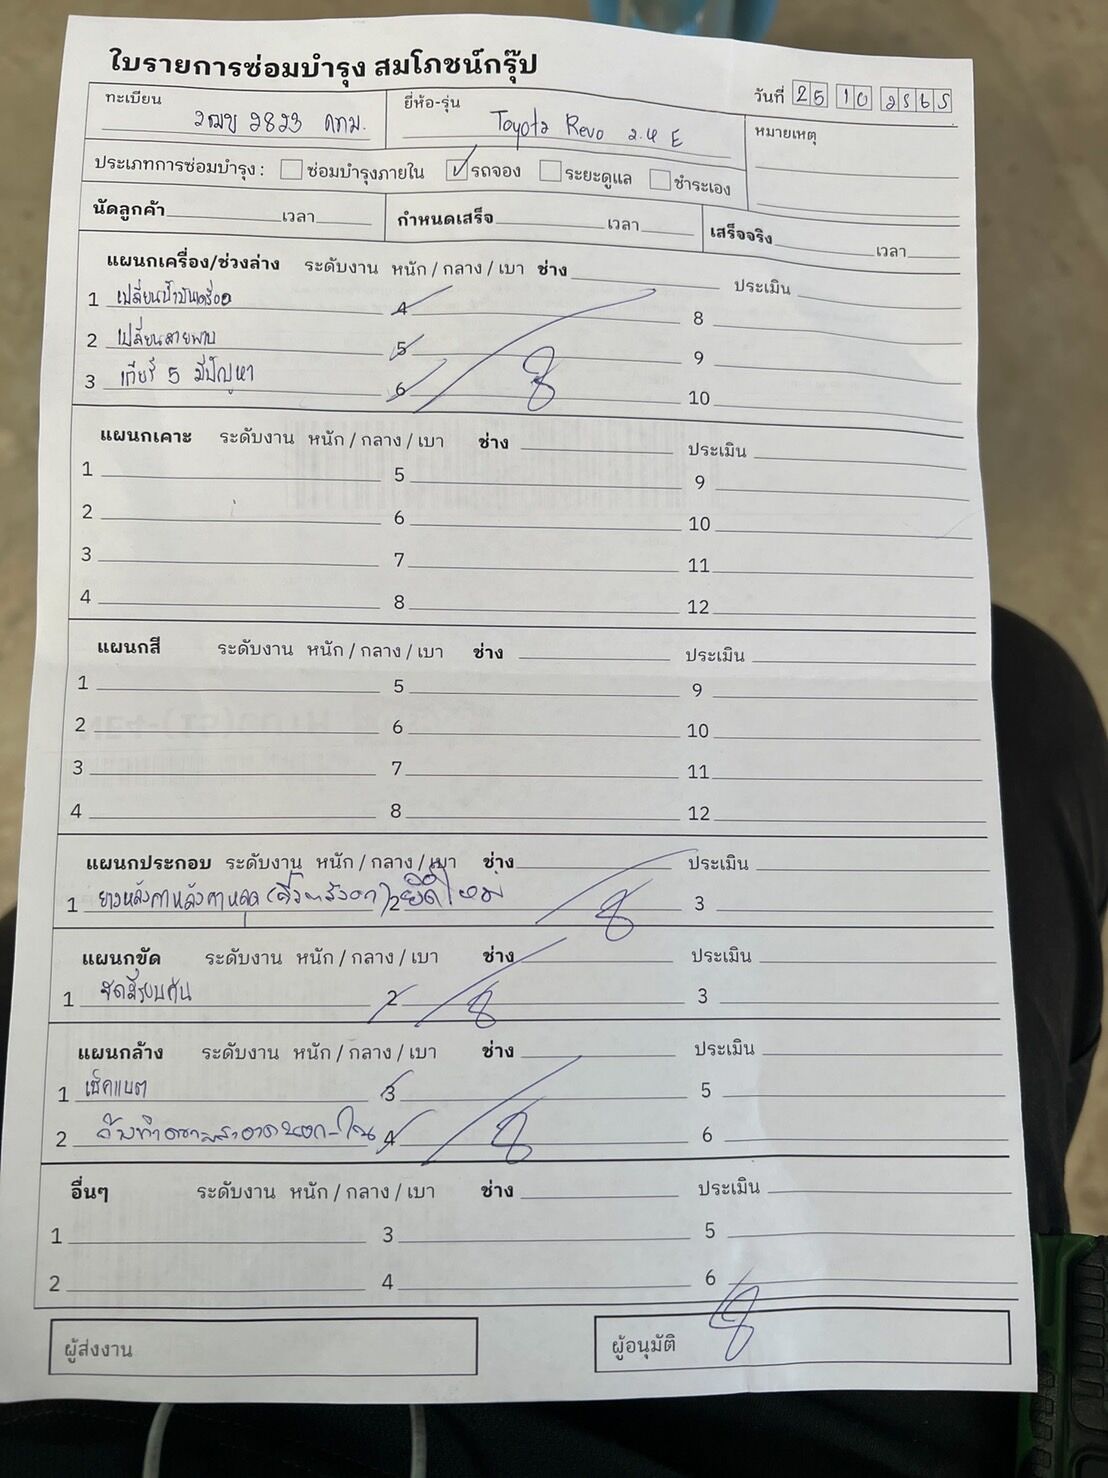 ใบรายการซ่อมบำรุง สมโภชน์กรุ๊ป
วันที่ 25 10 2565
ทะเบียน 2ฒข 2823 กทม.
ยี่ห้อ-รุ่น Toyota Revo 2.4 E
หมายเหตุ
ประเภทการซ่อมบำรุง : ซ่อมบำรุงภายใน ✓ รถจอง ระยะดูแล ชำระเอง
นัดลูกค้า เวลา กำหนดเสร็จ เวลา เสร็จจริง เวลา
แผนกเครื่อง/ช่วงล่าง ระดับงาน หนัก / กลาง / เบา ช่าง ประเมิน
1 เปลี่ยนน้ำมันเครื่อง 4 8
2 เปลี่ยนสายพาน 5 9
3 เกียร์ 5 มีปัญหา 6 10
แผนกเคาะ ระดับงาน หนัก / กลาง / เบา ช่าง ประเมิน
1 5 9
2 6 10
3 7 11
4 8 12
แผนกสี ระดับงาน หนัก / กลาง / เบา ช่าง ประเมิน
1 5 9
2 6 10
3 7 11
4 8 12
แผนกประกอบ ระดับงาน หนัก / กลาง / เบา ช่าง ประเมิน
1 ยางหลังคาหลังคาหลุด 2 ยึดใหม่ 3
แผนกขัด ระดับงาน หนัก / กลาง / เบา ช่าง ประเมิน
1 ขัดสีรอบคัน 2 3
แผนกล้าง ระดับงาน หนัก / กลาง / เบา ช่าง ประเมิน
1 เช็คแบต 3 5
2 ล้างทำความสะอาดนอก-ใน 4 6
อื่นๆ ระดับงาน หนัก / กลาง / เบา ช่าง ประเมิน
1 3 5
2 4 6
ผู้ส่งงาน ผู้อนุมัติ